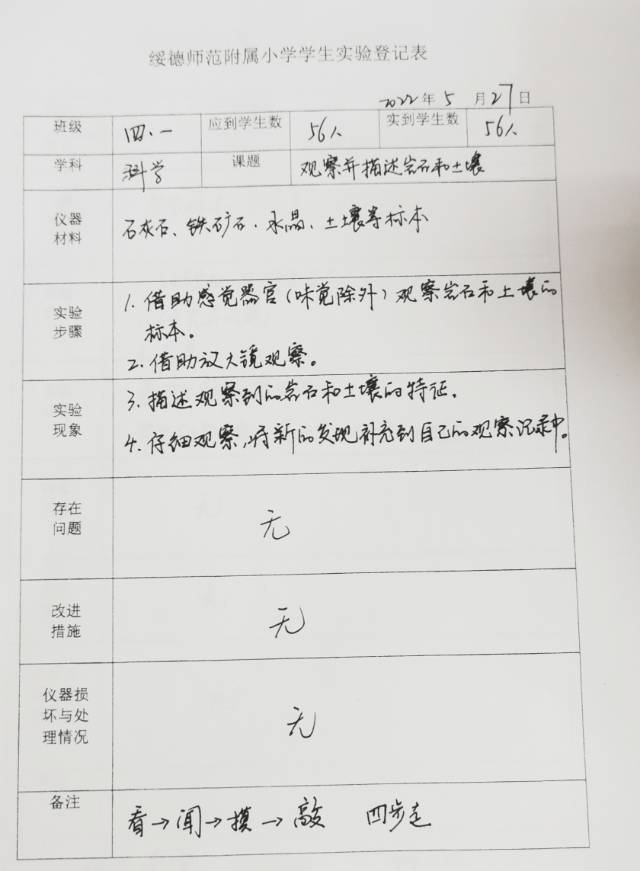 绥德师范附属小学学生实验登记表
2022年5月27日
班级 四.一 应到学生数 56人 实到学生数 56人
学科 科学 课题 观察并描述岩石和土壤
仪器
材料
石灰石、铁矿石、水晶、土壤等标本
实验
步骤
1. 借助感觉器官(味觉除外)观察岩石和土壤的
标本。
2. 借助放大镜观察。
实验
现象
3. 描述观察到的岩石和土壤的特征.
4. 仔细观察,将新的发现补充到自己的观察记录中。
存在
问题
无
改进
措施
无
仪器损
坏与处
理情况
无
备注
看→闻→摸→敲 四步走